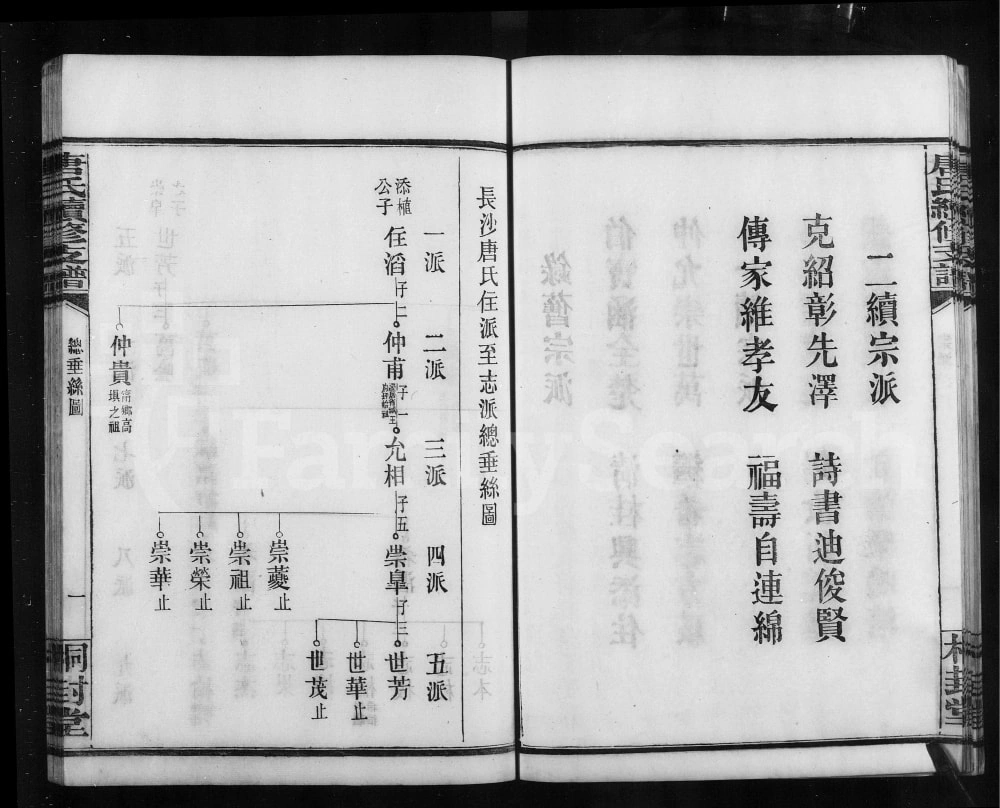 二續宗派
克紹彰先澤 詩書迪俊賢
傳家維孝友 福壽自連綿
桐封堂
長沙唐氏住派至志派總垂絲圖
一派 二派 三派 四派 五派
添植公子 住滔 子二 仲甫 子一 允相 子五 崇阜 子三 世芳
世華止
世茂止
崇夔止
崇祖止
崇榮止
崇華止
仲貴 甯鄉高
埧之祖
唐氏續修支譜
總垂絲圖
一
桐封堂
FamilySearch